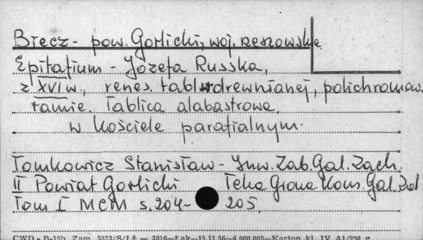 Biecz - pow. Gorlicki, woj. rzeszowskie
Epitafium - Józefa Russka,
z XVI w, renes. tabl. w drewnianej, polichromow.
ramie. Tablica alabastrowa,
w kościele parafialnym.
Tomkowicz Stanisław - Inw. Zab. Gal. Zach.
II Powiat Gorlicki Teka Grona Kons. Gal. Zach
Tom I MCM s. 204- 205,
CWD - B-15b. Zam. 5123/S/Łż — 3016—Łak—15.11.56—4.000.000—Karton kl. IV A1/250 g